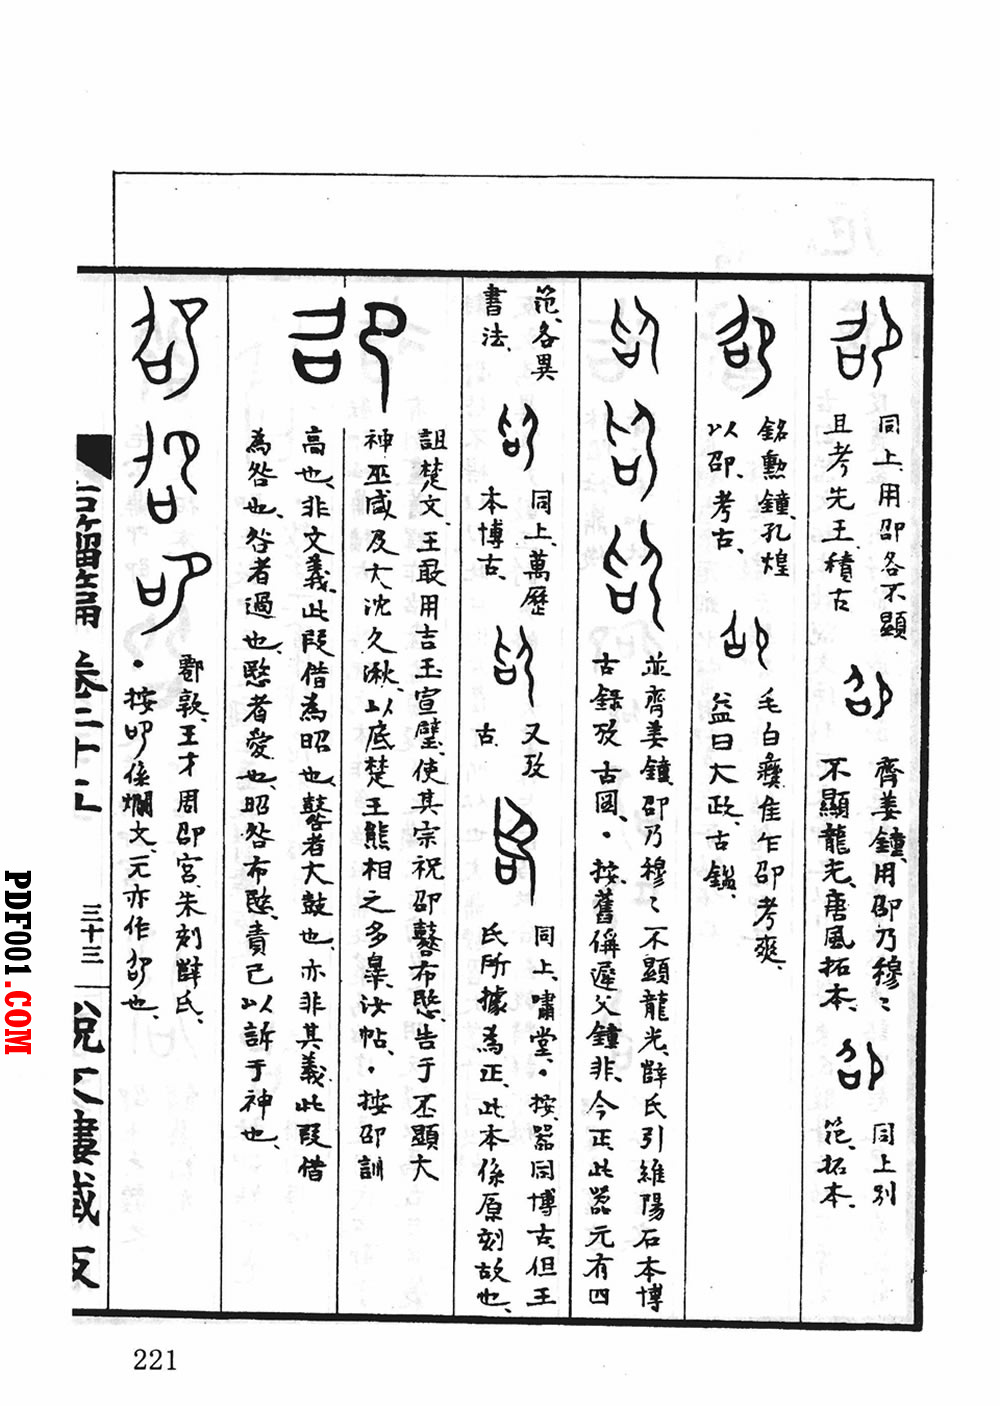 同上、用卲各不顯
且考先王積古
齊姜鐘、用卲乃穆〻
不顯龍光、唐風拓本、
同上別
笵、拓本、
銘勳鐘、孔煌
以卲、考古、
毛白彝隹乍卲考爽、
益曰大政、古鑑、
並齊姜鐘、卲乃穆〻不顯龍光、薛氏引維陽石本博
古錄攷古圖、·按、舊偁遟父鐘非、今正、此器元有四
笵、各異
書法、
同上、萬歷
本博古、
又攷
古、
同上、嘯堂、·按、器同博古、但王
氏所據為正、此本係原刻故也、
詛楚文、王敢用吉玉宣璧、使其宗祝卲鼛布愍、告于丕顯大
神巫咸及大沈久湫、以底楚王熊相之多辠、汝帖、·按卲訓
高也、非文義、此叚借為昭也、鼛者大鼓也、亦非其義、此叚借
為咎也、咎者過也、愍者愛也、昭咎布愍、責己以訴于神也、
鄠敦、王才周卲宮、朱刻薛氏、
·按、卲係爛文、元亦作卲也、
古籀篇 卷二十五
三十三
說文樓藏版
221
PDF001.COM